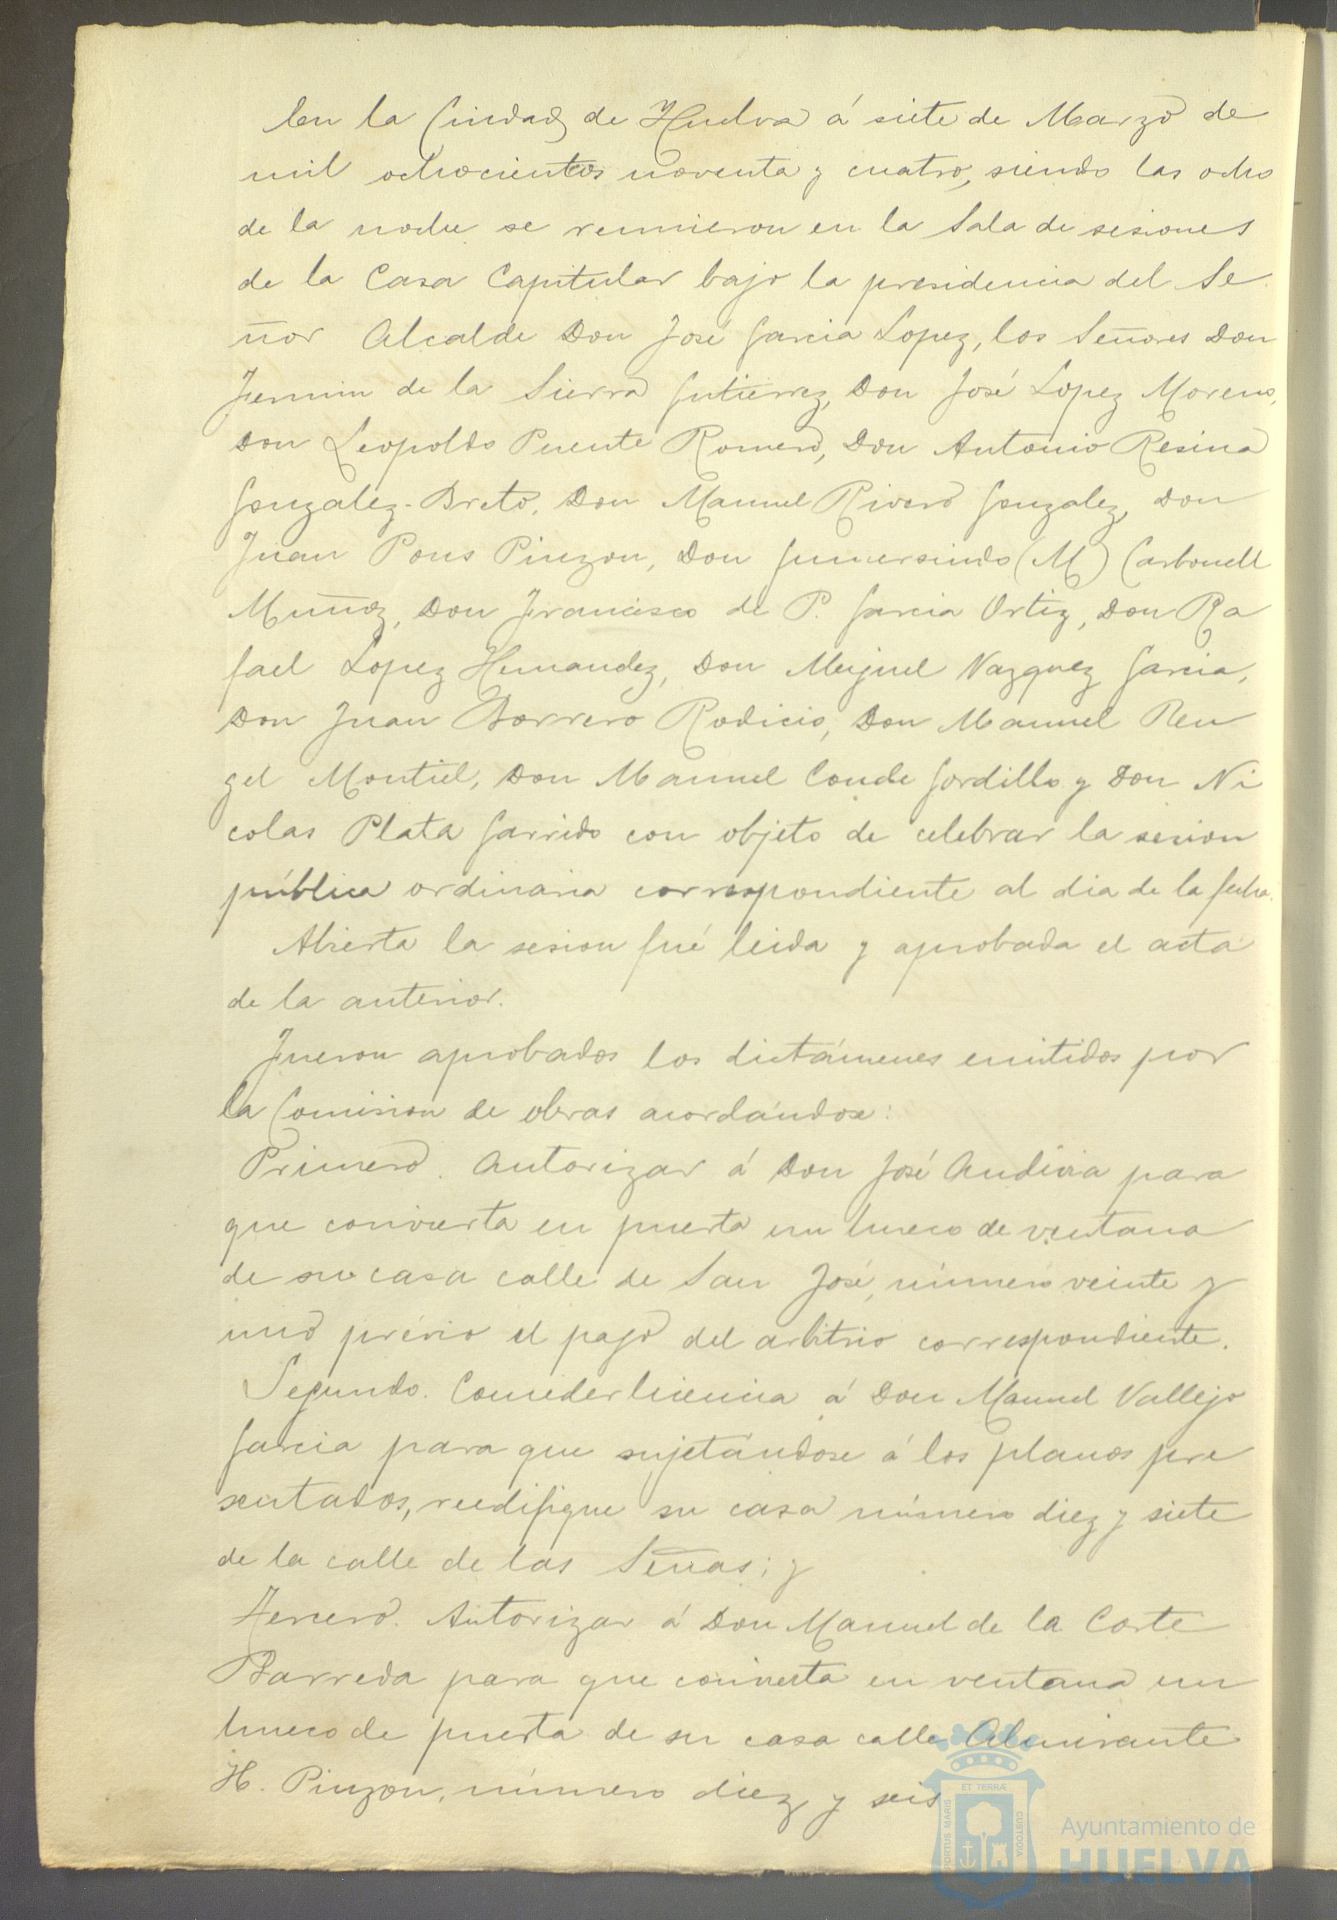 En la Ciudad de Huelva á siete de Marzo de
mil ochocientos noventa y cuatro, siendo las ocho
de la noche se reunieron en la Sala de sesiones
de la Casa Capitular bajo la presidencia del Se
ñor Alcalde Don José Garcia Lopez, los Señores Don
Fermin de la Sierra Gutierrez, Don José Lopez Moreno,
Don Leopoldo Puente Romero, Don Antonio Resina
Gonzalez-Breto, Don Manuel Rivero Gonzalez, Don
Juan Pons Pinzon, Don Gumersindo (M) Carbonell
Muñoz, Don Francisco de P. Garcia Ortiz, Don Ra
fael Lopez Hernandez, Don Miguel Vazquez Garcia,
Don Juan Borrero Rodicio, Don Manuel Ren
gel Montiel, Don Manuel Conde Gordillo y Don Ni
colas Plata Garrido con objeto de celebrar la sesion
pública ordinaria correspondiente al dia de la fecha.
Abierta la sesion fué leida y aprobada el acta
de la anterior.
Fueron aprobados los dictámenes emitidos por
la Comision de obras acordándose:
Primero. Autorizar á Don José Andivia para
que convierta en puerta un hueco de ventana
de su casa calle de San José, número veinte y
uno prévio el pago del arbitrio correspondiente.
Segundo. Conceder licencia á Don Manuel Vallejo
Garcia para que sujetándose á los planos pre
sentados, reedifique su casa número diez y siete
de la calle de las Señas; y
Tercero. Autorizar á Don Manuel de la Corte
Barreda para que convierta en ventana un
hueco de puerta de su casa calle Almirante
H. Pinzon, número diez y seis
PORTUS MARIS ET TERRÆ CUSTODIA
Ayuntamiento de
HUELVA